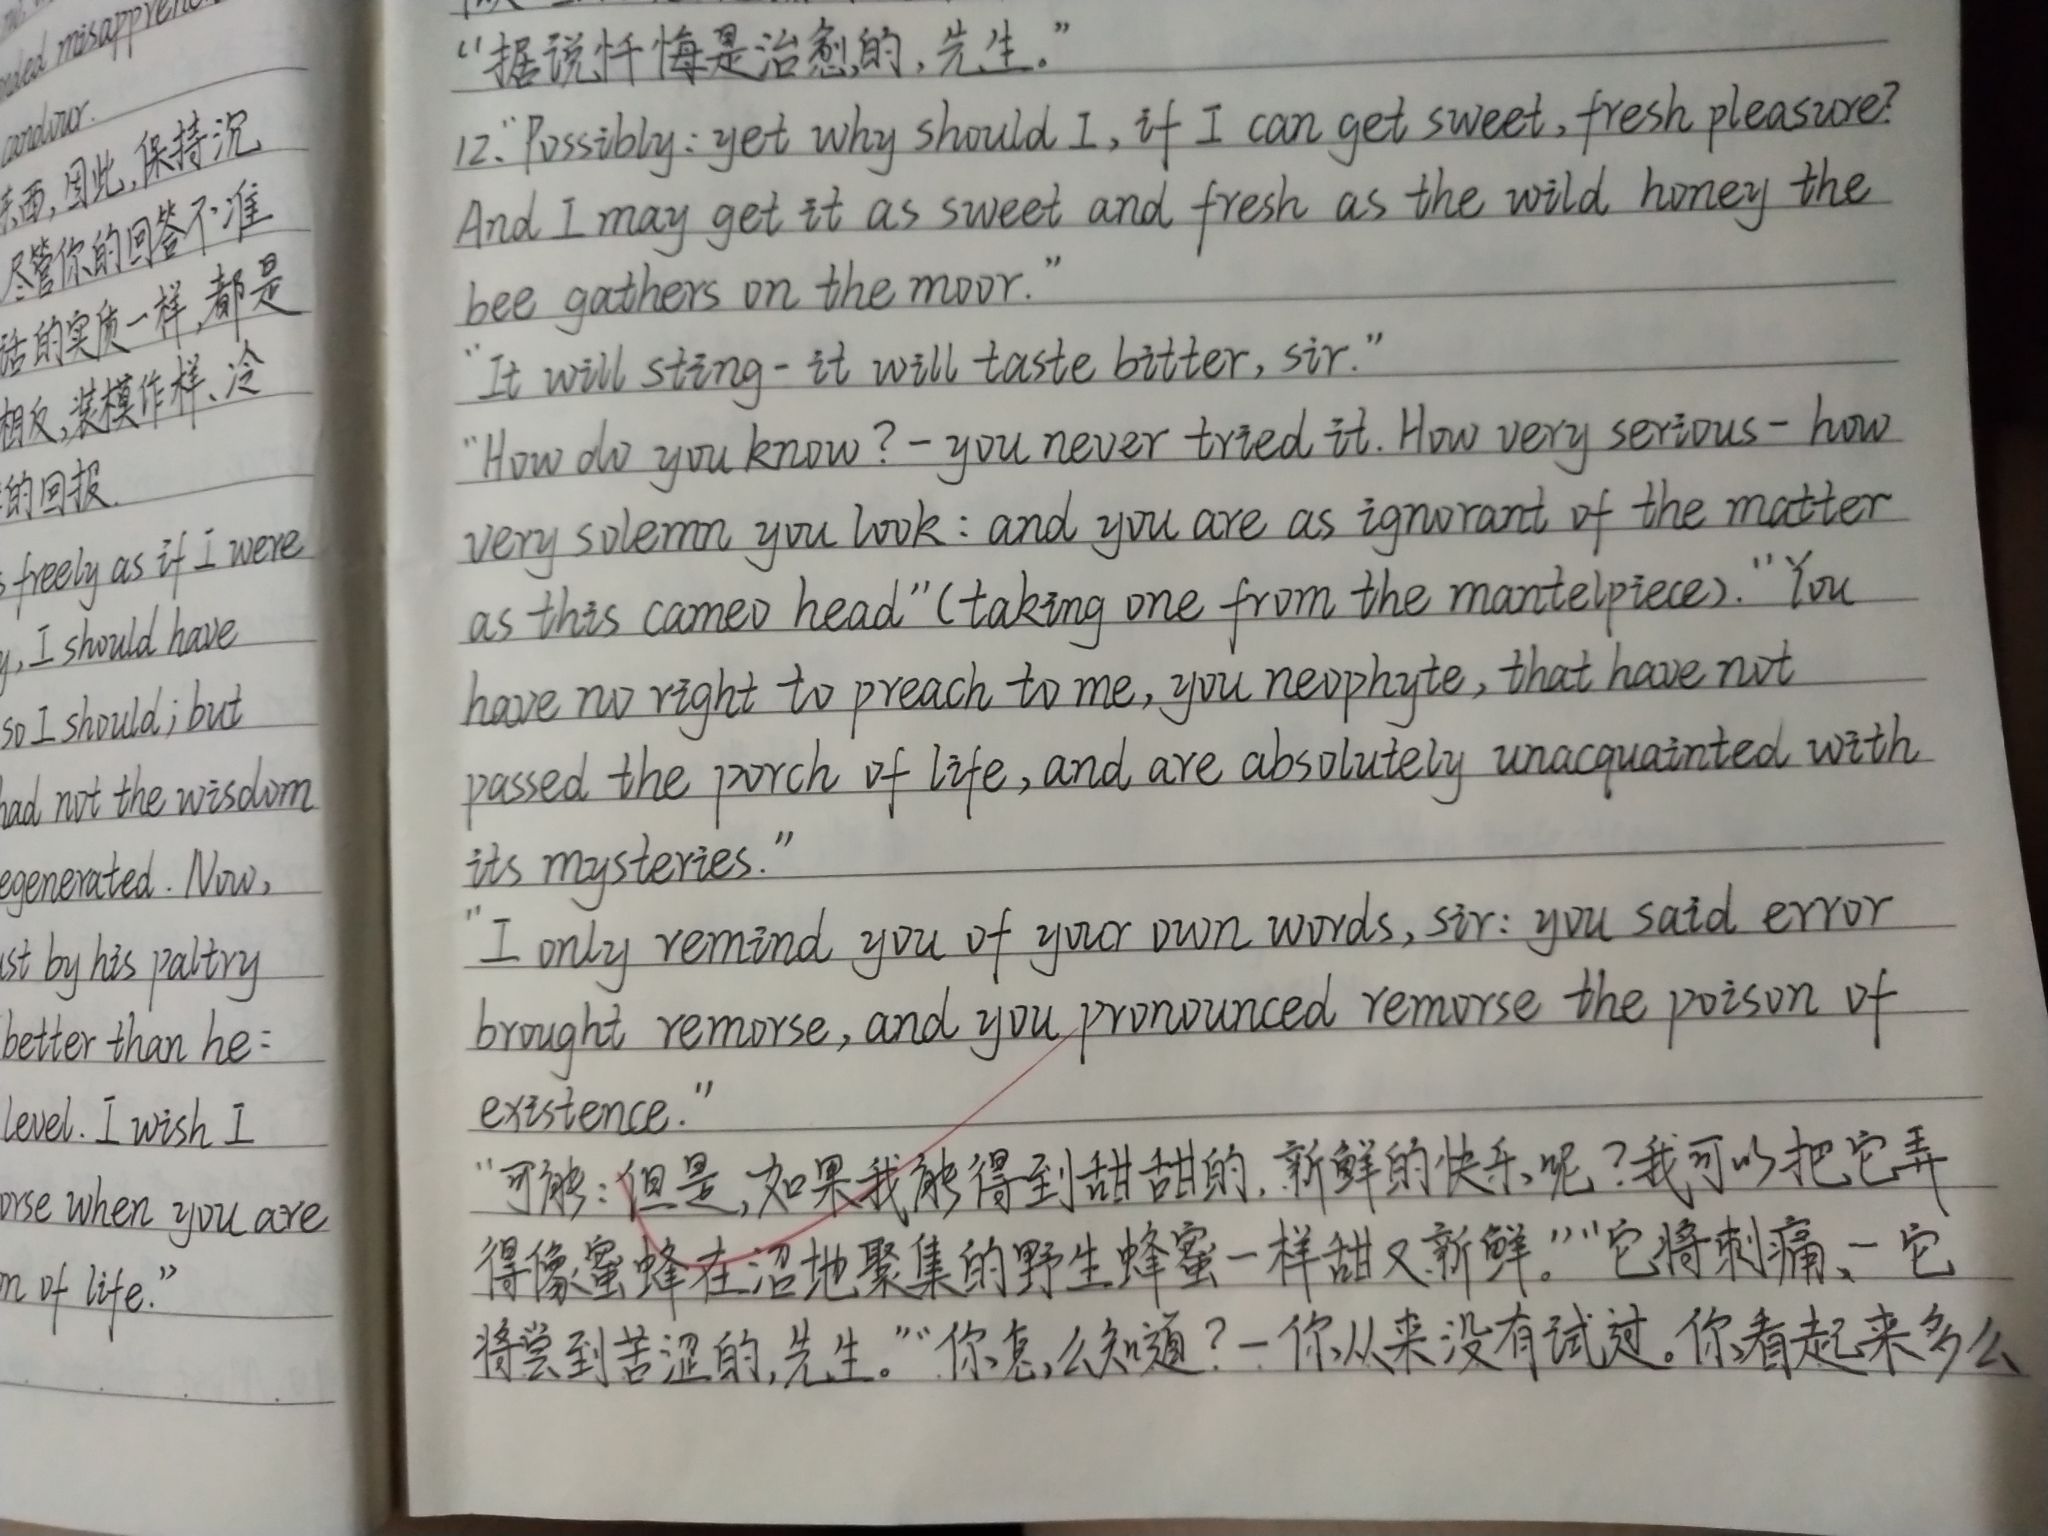 misapprehen
candour.
东西,因此,保持沉
尽管你的回答不准
话的实质一样,都是
相反,装模作样、冷
的回报.
freely as if I were
, I should have
so I should; but
had not the wisdom
egenerated. Now,
by his paltry
better than he:
level. I wish I
when you are
of life."
“据说忏悔是治愈的,先生。”
12."Possibly: yet why should I, if I can get sweet, fresh pleasure?
And I may get it as sweet and fresh as the wild honey the
bee gathers on the moor."
"It will sting - it will taste bitter, sir."
"How do you know? - you never tried it. How very serious - how
very solemn you look: and you are as ignorant of the matter
as this cameo head" (taking one from the mantelpiece). "You
have no right to preach to me, you neophyte, that have not
passed the porch of life, and are absolutely unacquainted with
its mysteries."
"I only remind you of your own words, sir: you said error
brought remorse, and you pronounced remorse the poison of
existence."
"可能:但是,如果我能得到甜甜的,新鲜的快乐呢?我可以把它弄
得像蜜蜂在沼地聚集的野生蜂蜜一样甜又新鲜。""它将刺痛、-它
将尝到苦涩的,先生。""你怎么知道?-你从来没有试过。你看起来多么